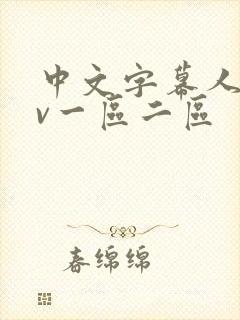 中文字幕人
v一區二區
春绵绵